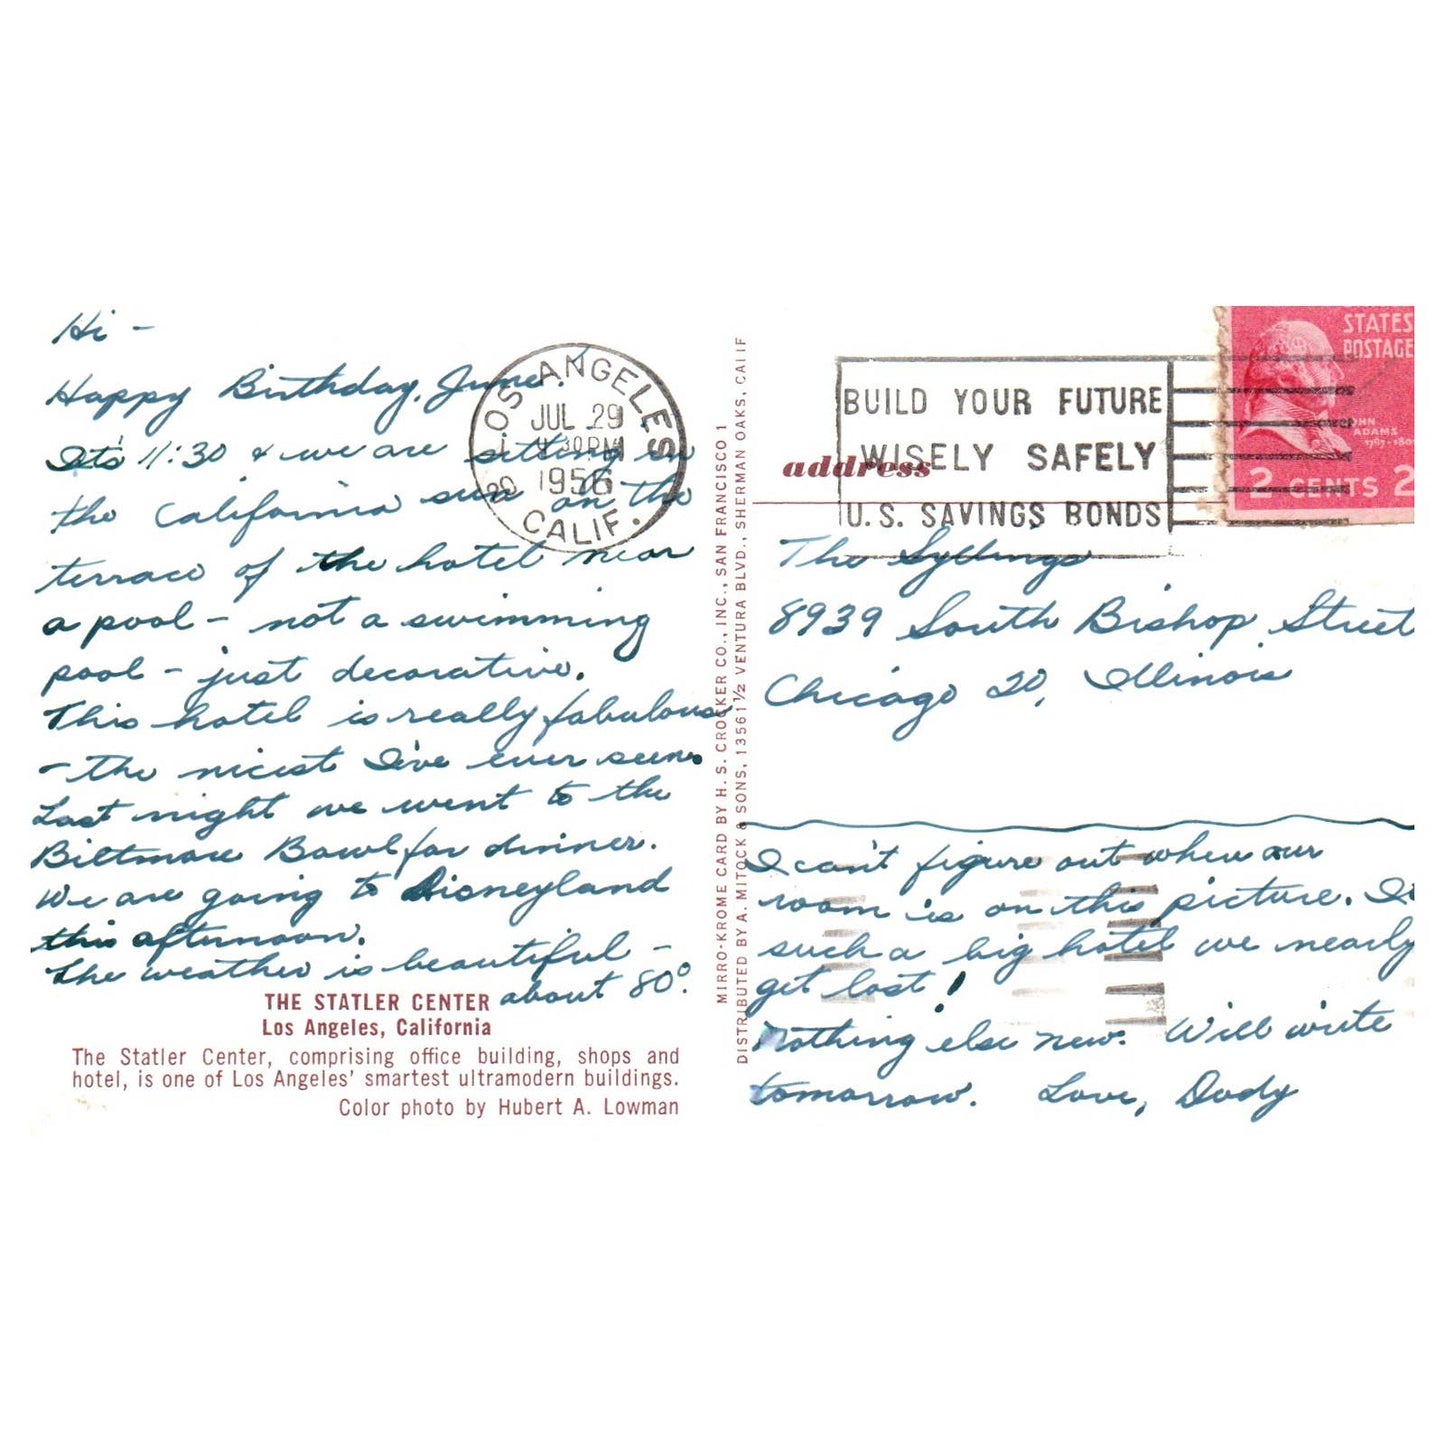 Hi -
Happy Birthday, June.
It's 11:30 & we are sitting in
the California sun on the
terrace of the hotel near
a pool - not a swimming
pool - just decorative.
This hotel is really fabulous
- the nicest I've ever seen.
Last night we went to the
Biltmore Bowl for dinner.
We are going to Disneyland
this afternoon.
The weather is beautiful -
about 80°.
THE STATLER CENTER
Los Angeles, California
The Statler Center, comprising office building, shops and
hotel, is one of Los Angeles' smartest ultramodern buildings.
Color photo by Hubert A. Lowman
LOS ANGELES
JUL 29
30 PM
1956
CALIF.
MIRRO-KROME CARD BY H. S. CROCKER CO., INC., SAN FRANCISCO 1
DISTRIBUTED BY A. MITOCK & SONS, 13561 1/2 VENTURA BLVD., SHERMAN OAKS, CALIF
BUILD YOUR FUTURE
WISELY SAFELY
U.S. SAVINGS BONDS
STATES
POSTAGE
JOHN
ADAMS
2 CENTS 2
address
The Syllings
8939 South Bishop Street
Chicago 20, Illinois
I can't figure out when our
room is on this picture. It
such a big hotel we nearly
get lost!
Nothing else new. Will write
tomorrow. Love, Dody